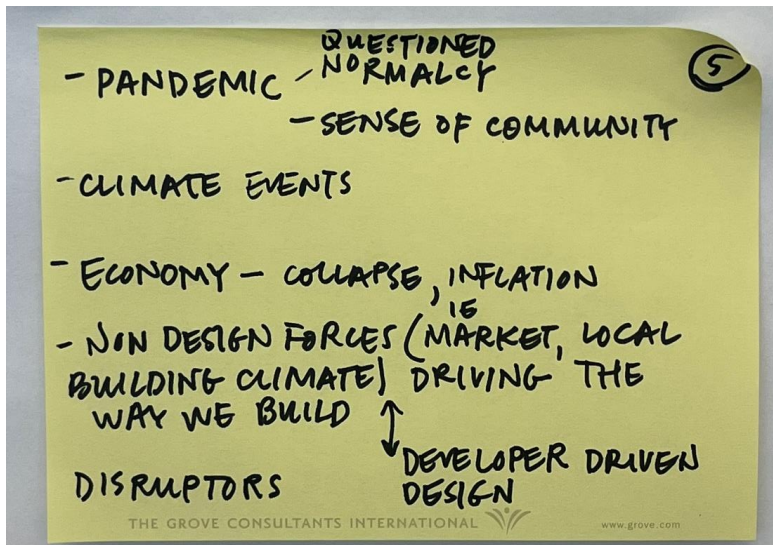 QUESTIONED
- PANDEMIC - NORMALCY
5
- SENSE OF COMMUNITY
- CLIMATE EVENTS
- ECONOMY - COLLAPSE, INFLATION
IE
- NON DESIGN FORCES (MARKET, LOCAL
BUILDING CLIMATE) DRIVING THE
WAY WE BUILD
DEVELOPER DRIVEN
DESIGN
DISRUPTORS
THE GROVE CONSULTANTS INTERNATIONAL
www.grove.com